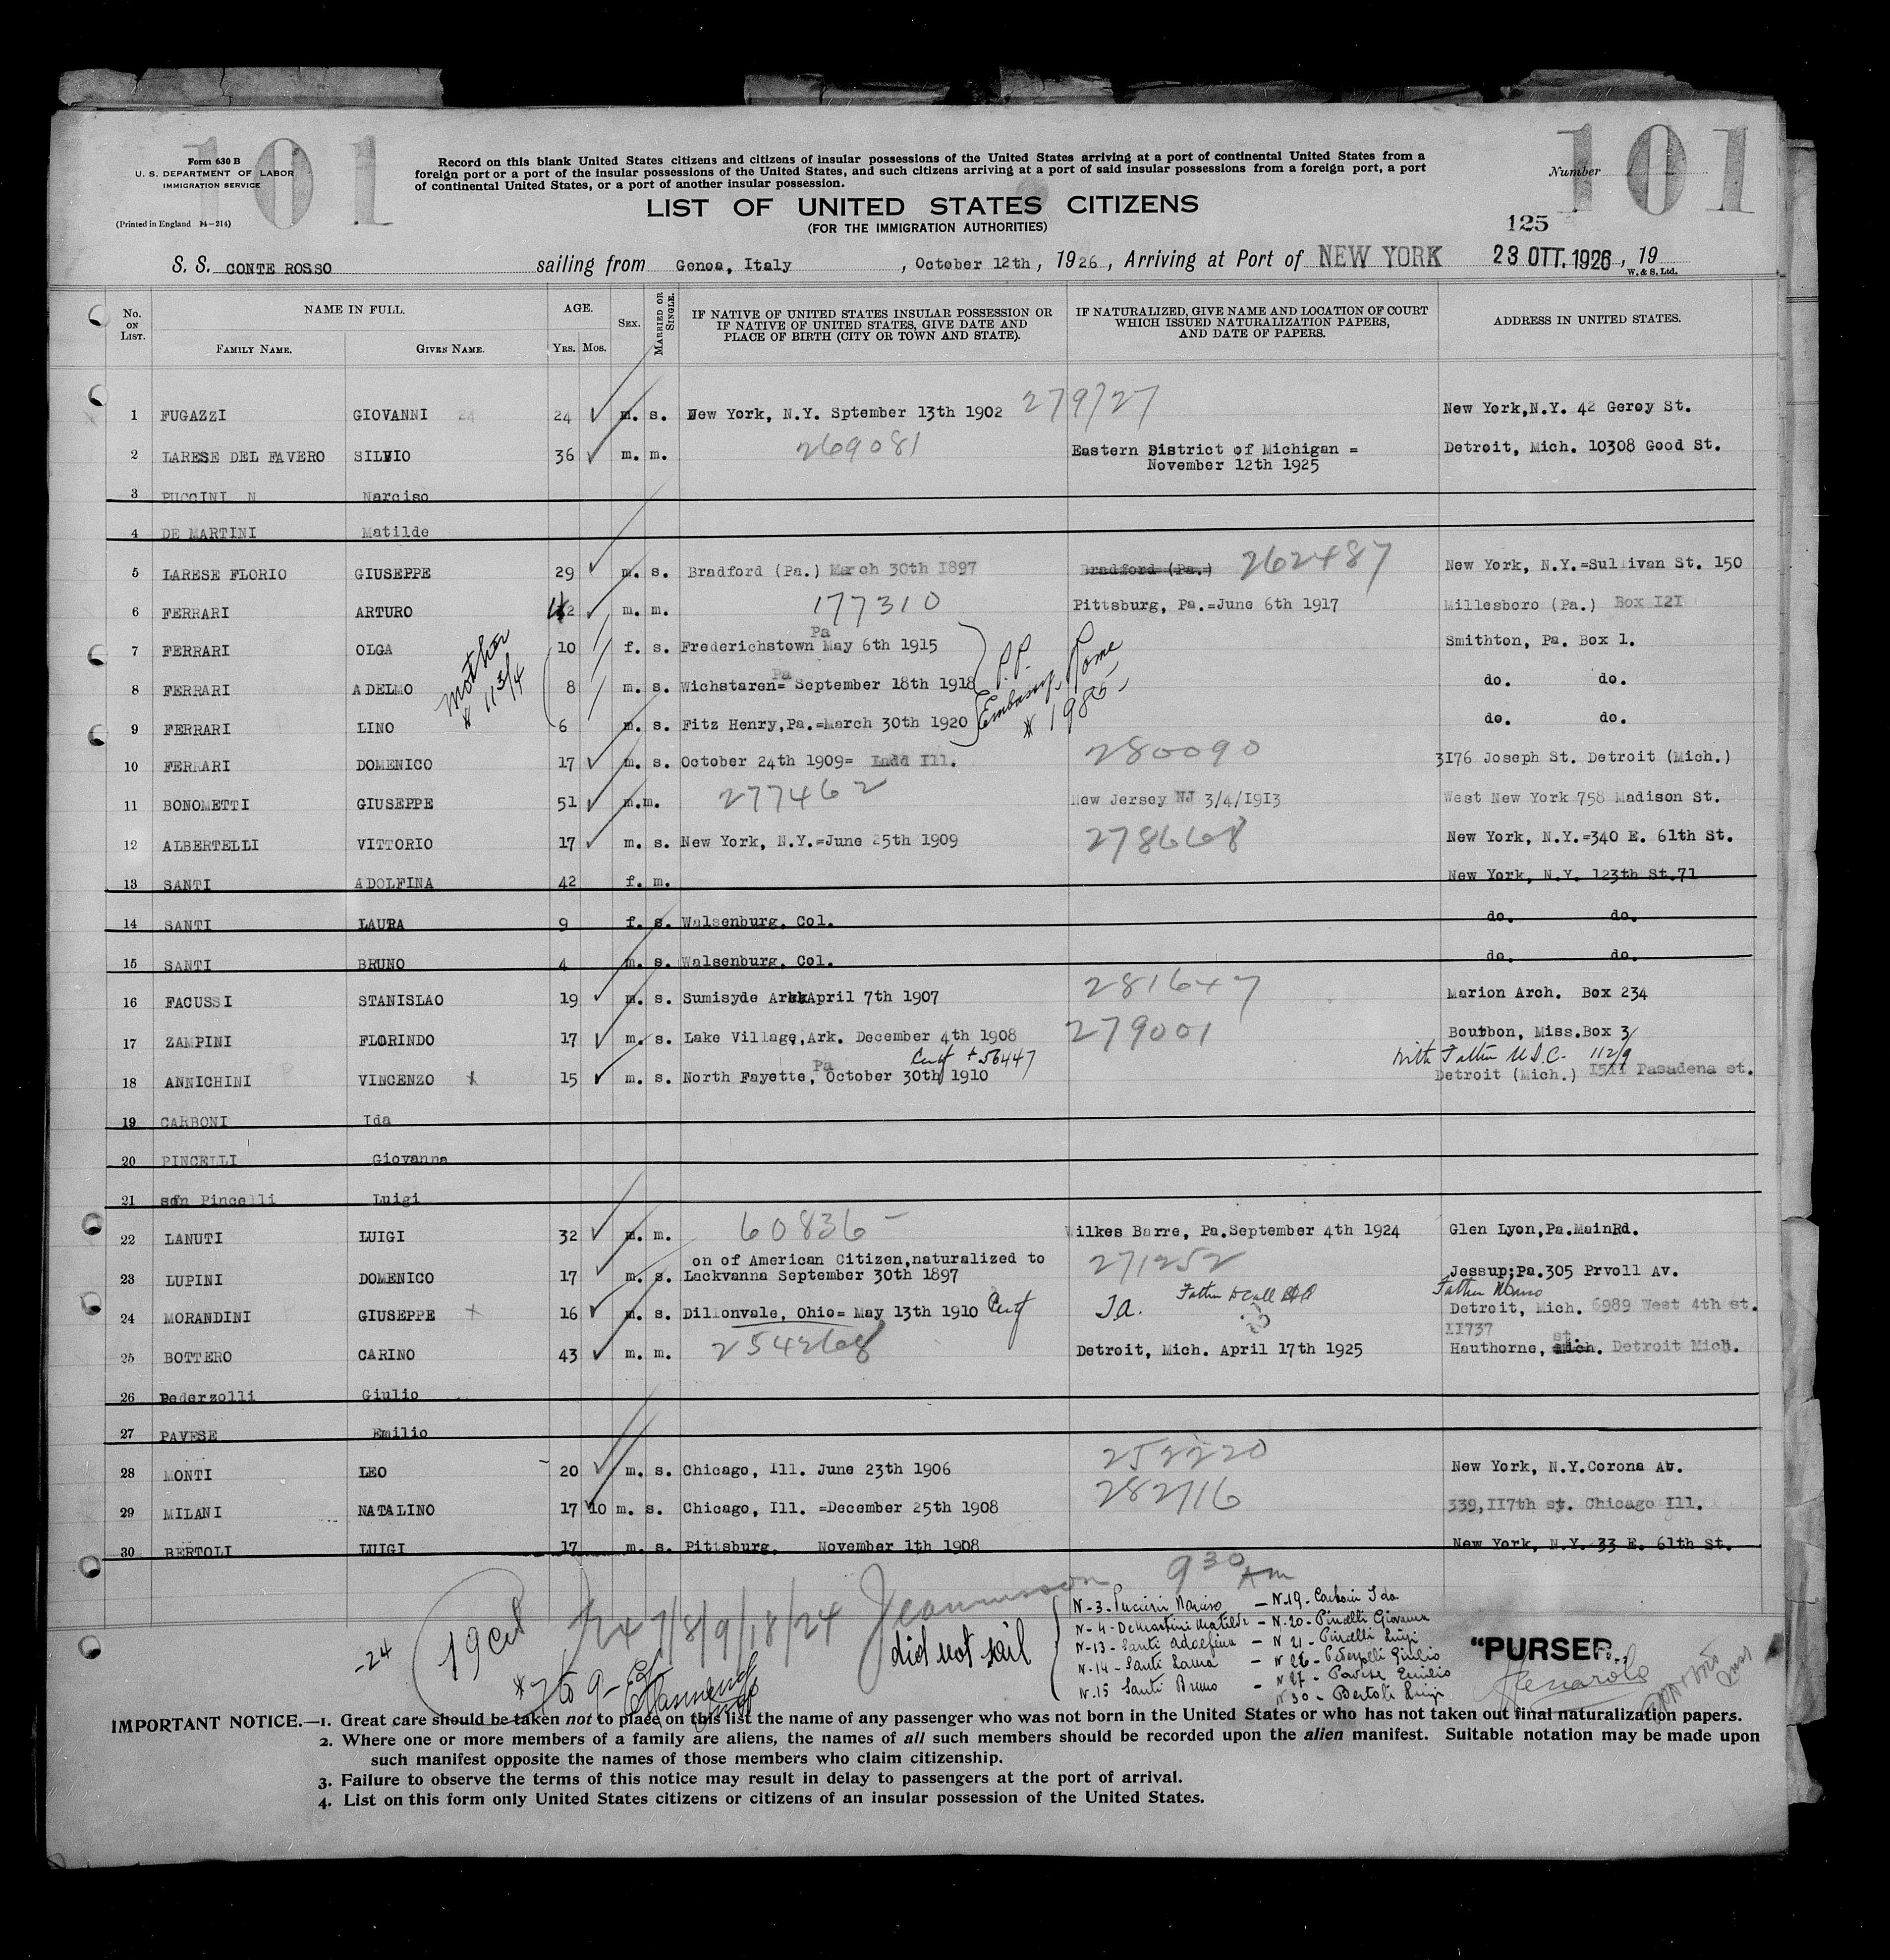 101
101
Form 630 B
U. S. DEPARTMENT OF LABOR
IMMIGRATION SERVICE
(Printed in England 14-214)
Record on this blank United States citizens and citizens of insular possessions of the United States arriving at a port of continental United States from a
foreign port or a port of the insular possessions of the United States, and such citizens arriving at a port of said insular possessions from a foreign port, a port
of continental United States, or a port of another insular possession.
Number
LIST OF UNITED STATES CITIZENS
(FOR THE IMMIGRATION AUTHORITIES)
125
S. S. CONTE ROSSO sailing from Genoa, Italy, October 12th, 1926, Arriving at Port of NEW YORK 23 OTT. 1926, 19
W. & S. Ltd.
No. ON LIST. NAME IN FULL. FAMILY NAME. GIVEN NAME. AGE. YRS. MOS. SEX. MARRIED OR SINGLE.
IF NATIVE OF UNITED STATES INSULAR POSSESSION OR
IF NATIVE OF UNITED STATES, GIVE DATE AND
PLACE OF BIRTH (CITY OR TOWN AND STATE).
IF NATURALIZED, GIVE NAME AND LOCATION OF COURT
WHICH ISSUED NATURALIZATION PAPERS,
AND DATE OF PAPERS.
ADDRESS IN UNITED STATES.
1 FUGAZZI GIOVANNI 24 24 m. s. New York, N.Y. Sptember 13th 1902 279727 New York,N.Y. 42 Geroy St.
2 LARESE DEL FAVERO SILVIO 36 m. m. 269081 Eastern District of Michigan =
November 12th 1925 Detroit, Mich. 10308 Good St.
3 PUCCINI N Narciso
4 DE MARTINI Matilde
5 LARESE FLORIO GIUSEPPE 29 m. s. Bradford (Pa.) March 30th 1897 Bradford (Pa.) 262487 New York, N.Y.=Sullivan St. 150
6 FERRARI ARTURO 42 m. m. 177310 Pittsburg, Pa.=June 6th 1917 Millesboro (Pa.) Box I2I
7 FERRARI OLGA 10 f. s. Frederichstown Pa May 6th 1915 Smithton, Pa. Box 1.
8 FERRARI ADELMO 8 m. s. Wichstaren= Pa September 18th 1918 do. do.
9 FERRARI LINO 6 m. s. Fitz Henry,Pa.=March 30th 1920 do. do.
mother
# 113/4
P.P.
Embassy, Rome
# 1985
10 FERRARI DOMENICO 17 m. s. October 24th 1909= Ladd Ill. 280090 3176 Joseph St. Detroit (Mich.)
11 BONOMETTI GIUSEPPE 51 m.m. 277462 New Jersey NJ 3/4/1913 West New York 758 Madison St.
12 ALBERTELLI VITTORIO 17 m. s. New York, N.Y.=June 25th 1909 278668 New York, N.Y.=340 E. 61th St.
13 SANTI ADOLFINA 42 f. m. New York, N.Y. 123th St.71
14 SANTI LAURA 9 f. s. Walsenburg, Col. do. do.
15 SANTI BRUNO 4 m. s. Walsenburg, Col. do. do.
16 FACUSSI STANISLAO 19 m. s. Sumisyde Ark April 7th 1907 281647 Marion Arch. Box 234
17 ZAMPINI FLORINDO 17 m. s. Lake Village,Ark. December 4th 1908 279001 Bourbon, Miss.Box 3
Cert # 56447 With Father U.S.C. 112/9
18 ANNICHINI VINCENZO x 15 m. s. North Fayette, Pa October 30th 1910 Detroit (Mich.) 1511 Pasadena st.
19 CARBONI Ida
20 PINCELLI Giovanna
21 son Pincelli Luigi
22 LANUTI LUIGI 32 m. m. 60836 Wilkes Barre, Pa.September 4th 1924 Glen Lyon,Pa.MainRd.
on of American Citizen,naturalized to
23 LUPINI DOMENICO 17 m. s. Lackvanna September 30th 1897 271252 Jessup;Pa.305 Prvoll Av.
24 MORANDINI GIUSEPPE x 16 m. s. Dillonvale, Ohio= May 13th 1910 Cert Detroit, Mich. 6989 West 4th st.
II737
25 BOTTERO CARINO 43 m. m. 254268 Detroit, Mich. April 17th 1925 Hauthorne, st. Mich. Detroit Mich.
26 Pederzolli Giulio
27 PAVESE Emilio
28 MONTI LEO 20 m. s. Chicago, Ill. June 23th 1906 252220 New York, N.Y.Corona Av.
29 MILANI NATALINO 17 10 m. s. Chicago, Ill. =December 25th 1908 282716 339,II7th st. Chicago Ill.
30 BERTOLI LUIGI 17 m. s. Pittsburg, November 1th 1908 New York, N.Y. 33 E. 61th St.
9 30 Am
-24
19 cit
7/8/9/18/24
did not sail
N-3-Puccini Narciso - N-19- Carboni Ida
N-4-DeMartini Matilde - N.20-Pincelli Giovanna
N-13-Santi Adolfina - N 21-Pincelli Luigi
N-14-Santi Laura - N 26-Pederzolli Giulio
N.15 Santi Bruno - N 27- Pavese Emilio
N 30 - Bertoli Luigi
"PURSER
IMPORTANT NOTICE.—1. Great care should be taken not to place on this list the name of any passenger who was not born in the United States or who has not taken out final naturalization papers.
2. Where one or more members of a family are aliens, the names of all such members should be recorded upon the alien manifest. Suitable notation may be made upon
such manifest opposite the names of those members who claim citizenship.
3. Failure to observe the terms of this notice may result in delay to passengers at the port of arrival.
4. List on this form only United States citizens or citizens of an insular possession of the United States.